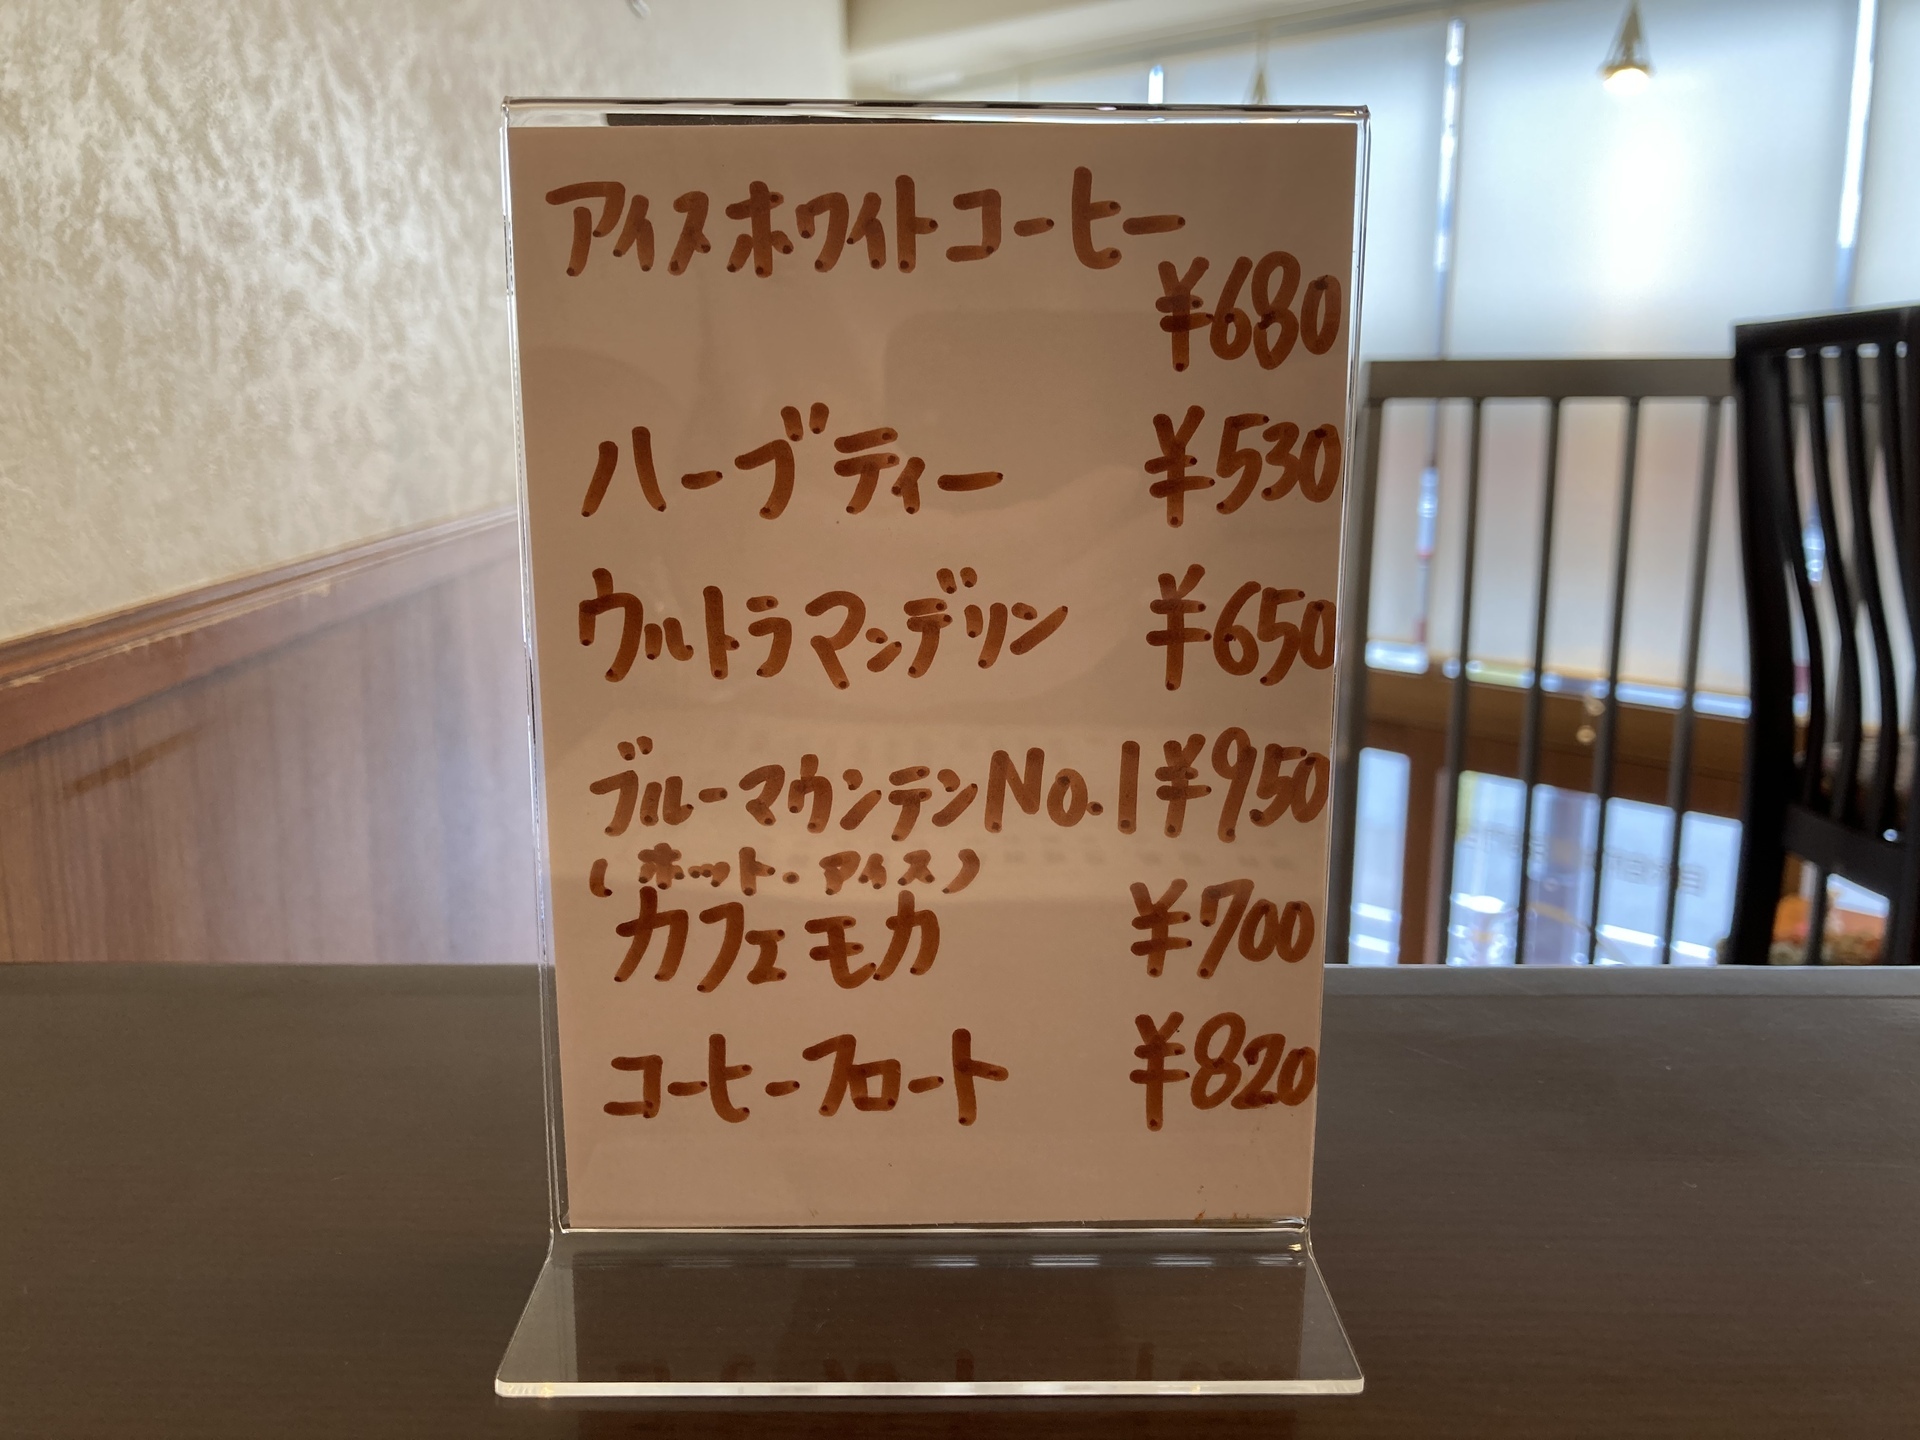 アイスホワイトコーヒー
¥680
ハーブティー ¥530
ウルトラマンデリン ¥650
ブルーマウンテンNo.1 ¥950
(ホット・アイス)
カフェモカ ¥700
コーヒーフロート ¥820